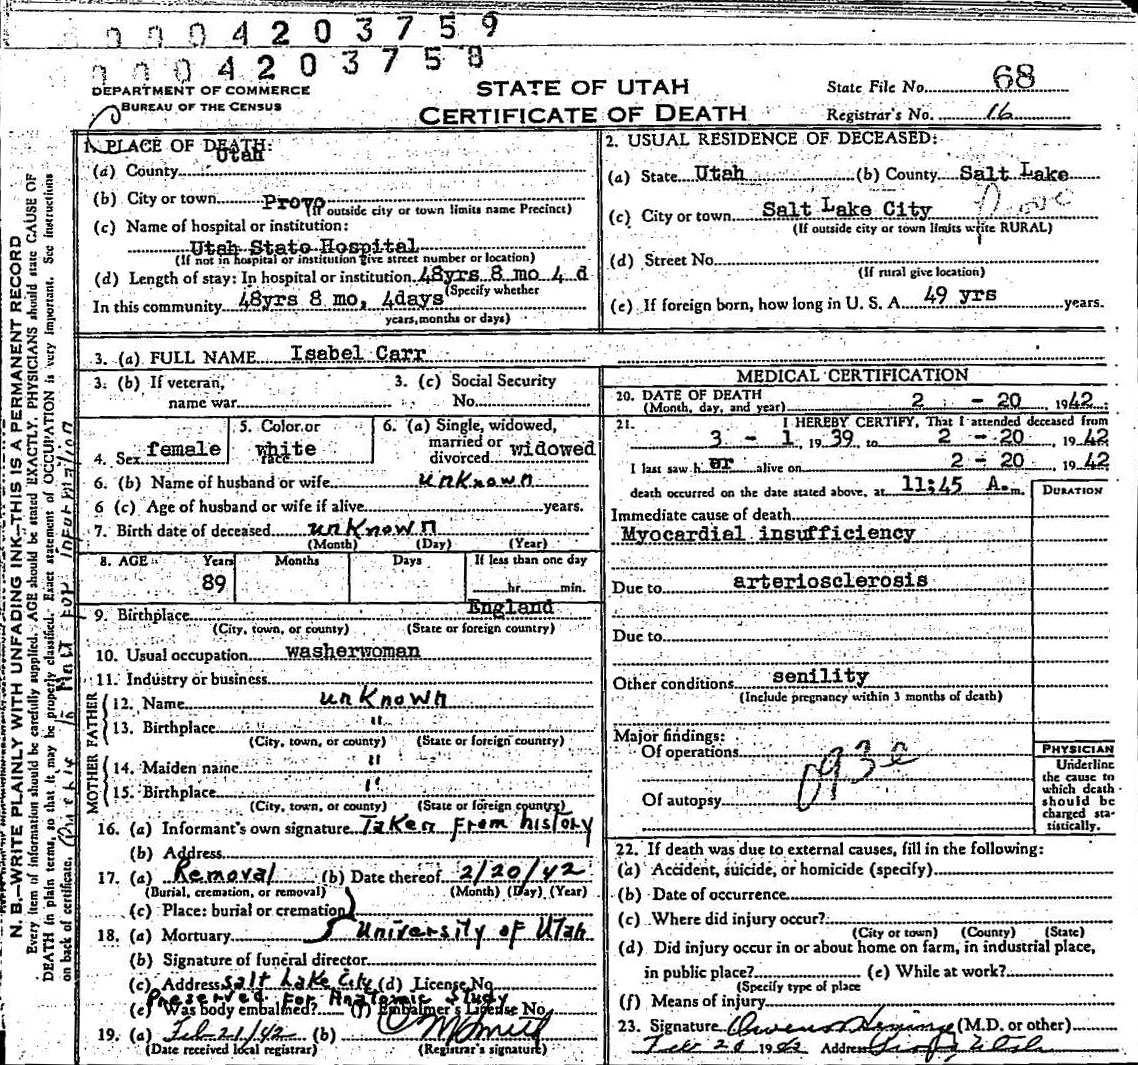 0004203759
0004203758
DEPARTMENT OF COMMERCE
BUREAU OF THE CENSUS
STATE OF UTAH
CERTIFICATE OF DEATH
State File No. 68
Registrar's No. 16
N. B.—WRITE PLAINLY WITH UNFADING INK—THIS IS A PERMANENT RECORD
Every item of information should be carefully supplied. AGE should be stated EXACTLY. PHYSICIANS should state CAUSE OF
DEATH in plain terms, so that it may be properly classified. Exact statement of OCCUPATION is very important. See instructions
on back of certificate.
1. PLACE OF DEATH:
(a) County Utah
(b) City or town Provo
(If outside city or town limits name Precinct)
(c) Name of hospital or institution:
Utah State Hospital
(If not in hospital or institution give street number or location)
(d) Length of stay: In hospital or institution 48yrs 8 mo 4 d
(Specify whether
In this community 48yrs 8 mo, 4days
years, months or days)
2. USUAL RESIDENCE OF DECEASED:
(a) State Utah (b) County Salt Lake
(c) City or town Salt Lake City Provo
(If outside city or town limits write RURAL)
(d) Street No.
(If rural give location)
(e) If foreign born, how long in U. S. A. 49 yrs years.
3. (a) FULL NAME Isabel Carr
3. (b) If veteran,
name war
3. (c) Social Security
No.
4. Sex female
5. Color or
race white
6. (a) Single, widowed,
married or
divorced widowed
6. (b) Name of husband or wife unknown
6 (c) Age of husband or wife if alive years.
7. Birth date of deceased unknown
(Month) (Day) (Year)
8. AGE Years Months Days If less than one day
89 hr. min.
9. Birthplace England
(City, town, or county) (State or foreign country)
10. Usual occupation washerwoman
11. Industry or business
FATHER
12. Name unknown
13. Birthplace "
(City, town, or county) (State or foreign country)
MOTHER
14. Maiden name "
15. Birthplace "
(City, town, or county) (State or foreign country)
16. (a) Informant's own signature Taken from history
(b) Address
17. (a) Removal (b) Date thereof 2/20/42
(Burial, cremation, or removal) (Month) (Day) (Year)
(c) Place: burial or cremation
18. (a) Mortuary University of Utah
(b) Signature of funeral director
(c) Address Salt Lake City (d) License No
Preserved for Anatomic Study
(e) Was body embalmed? (f) Embalmer's License No.
19. (a) Feb 21/42 (b)
(Date received local registrar) (Registrar's signature)
MEDICAL CERTIFICATION
20. DATE OF DEATH
(Month, day, and year) 2 - 20, 1942
21. I HEREBY CERTIFY, That I attended deceased from
3 - 1, 1939, to 2 - 20, 1942
I last saw her alive on 2 - 20, 1942
death occurred on the date stated above, at 11:45 A. m.
DURATION
Immediate cause of death
Myocardial insufficiency
Due to arteriosclerosis
Due to
Other conditions senility
(Include pregnancy within 3 months of death)
Major findings:
Of operations
Of autopsy
PHYSICIAN
Underline
the cause to
which death
should be
charged sta-
tistically.
22. If death was due to external causes, fill in the following:
(a) Accident, suicide, or homicide (specify)
(b) Date of occurrence
(c) Where did injury occur?
(City or town) (County) (State)
(d) Did injury occur in or about home on farm, in industrial place,
in public place? (e) While at work?
(Specify type of place
(f) Means of injury
23. Signature (M.D. or other)
Feb 20 1942 Address Provo, Utah